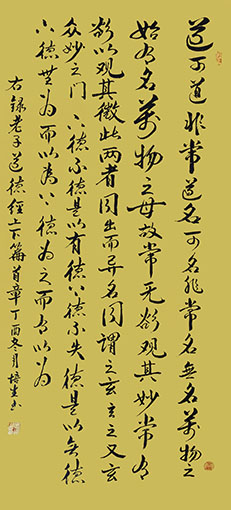 道可道非常道名可名非常名無名萬物之
始有名萬物之母故常无欲觀其妙常有
欲以观其徼此两者同出而异名同谓之玄玄之又玄
众妙之门上德不德是以有德下德不失德是以无德
上德无为而以为下德为之而有以为
右録老子道德经上下篇首章丁酉冬月培生书